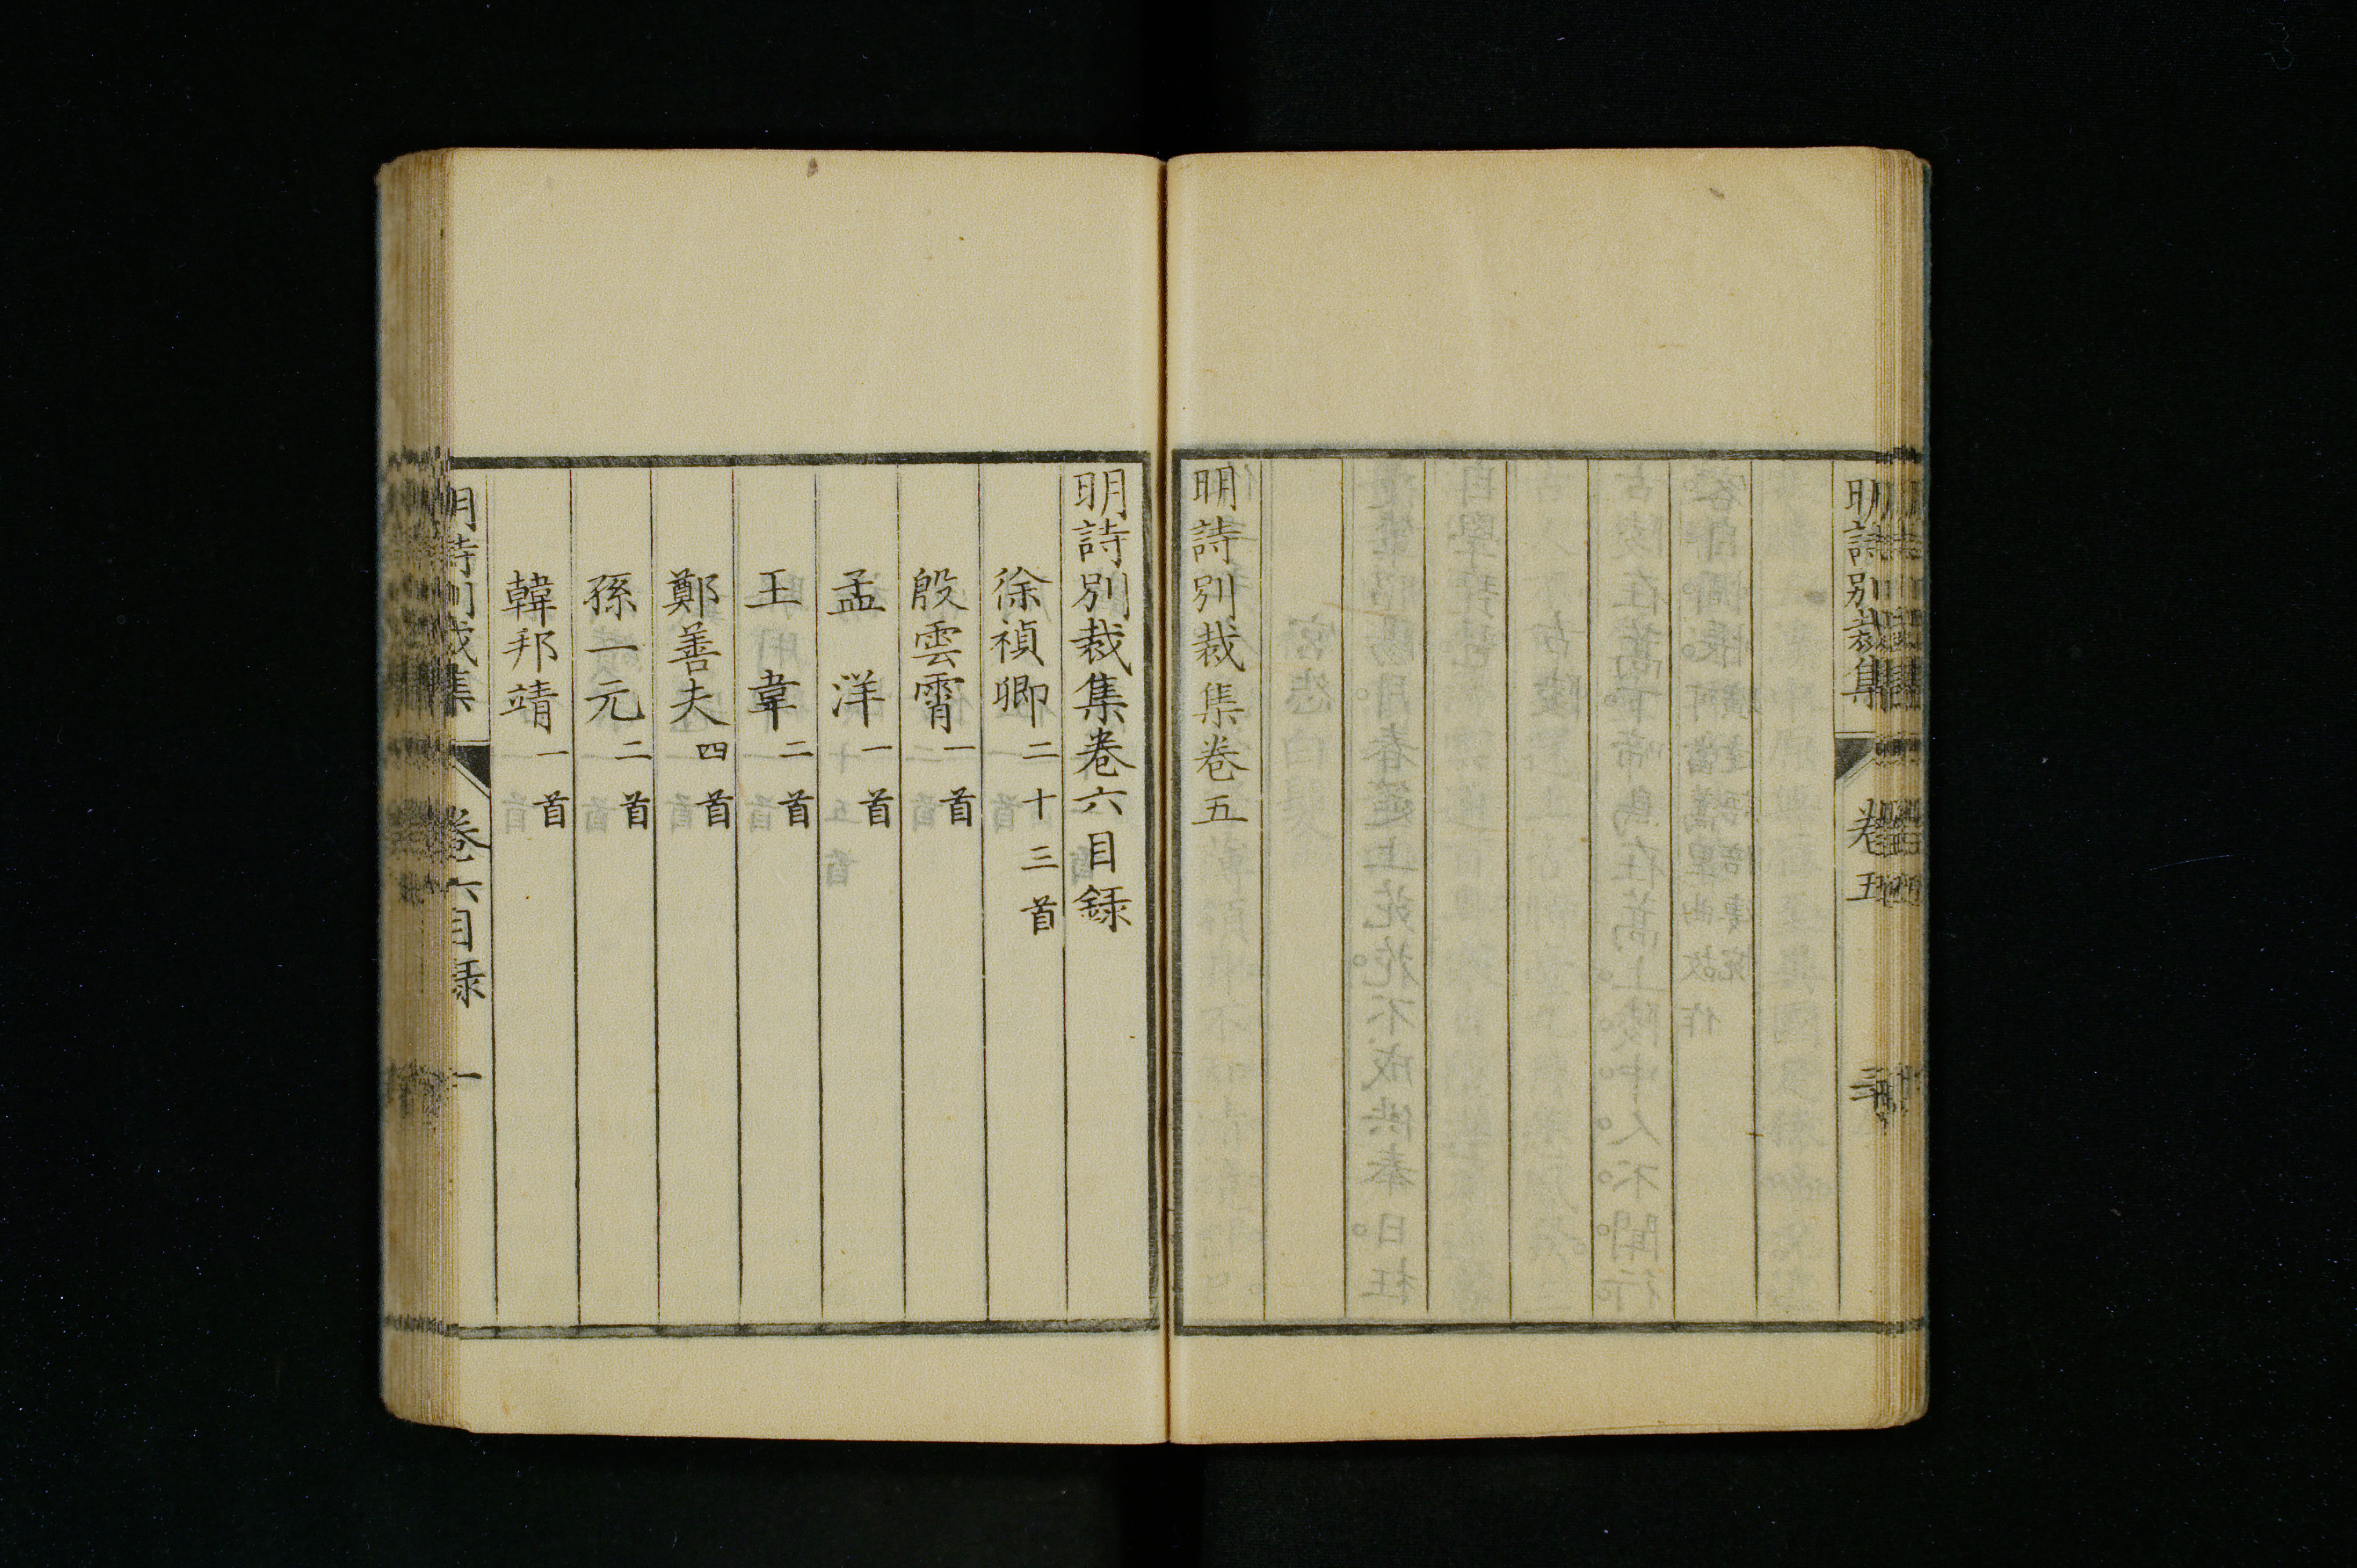 明詩別裁集 卷五
明詩別裁集卷五
明詩別裁集卷六目録
徐禎卿 二十三首
殷雲霄 一首
孟 洋 一首
王 韋 二首
鄭善夫 四首
孫一元 二首
韓邦靖 一首
明詩別裁集 卷六目録 一